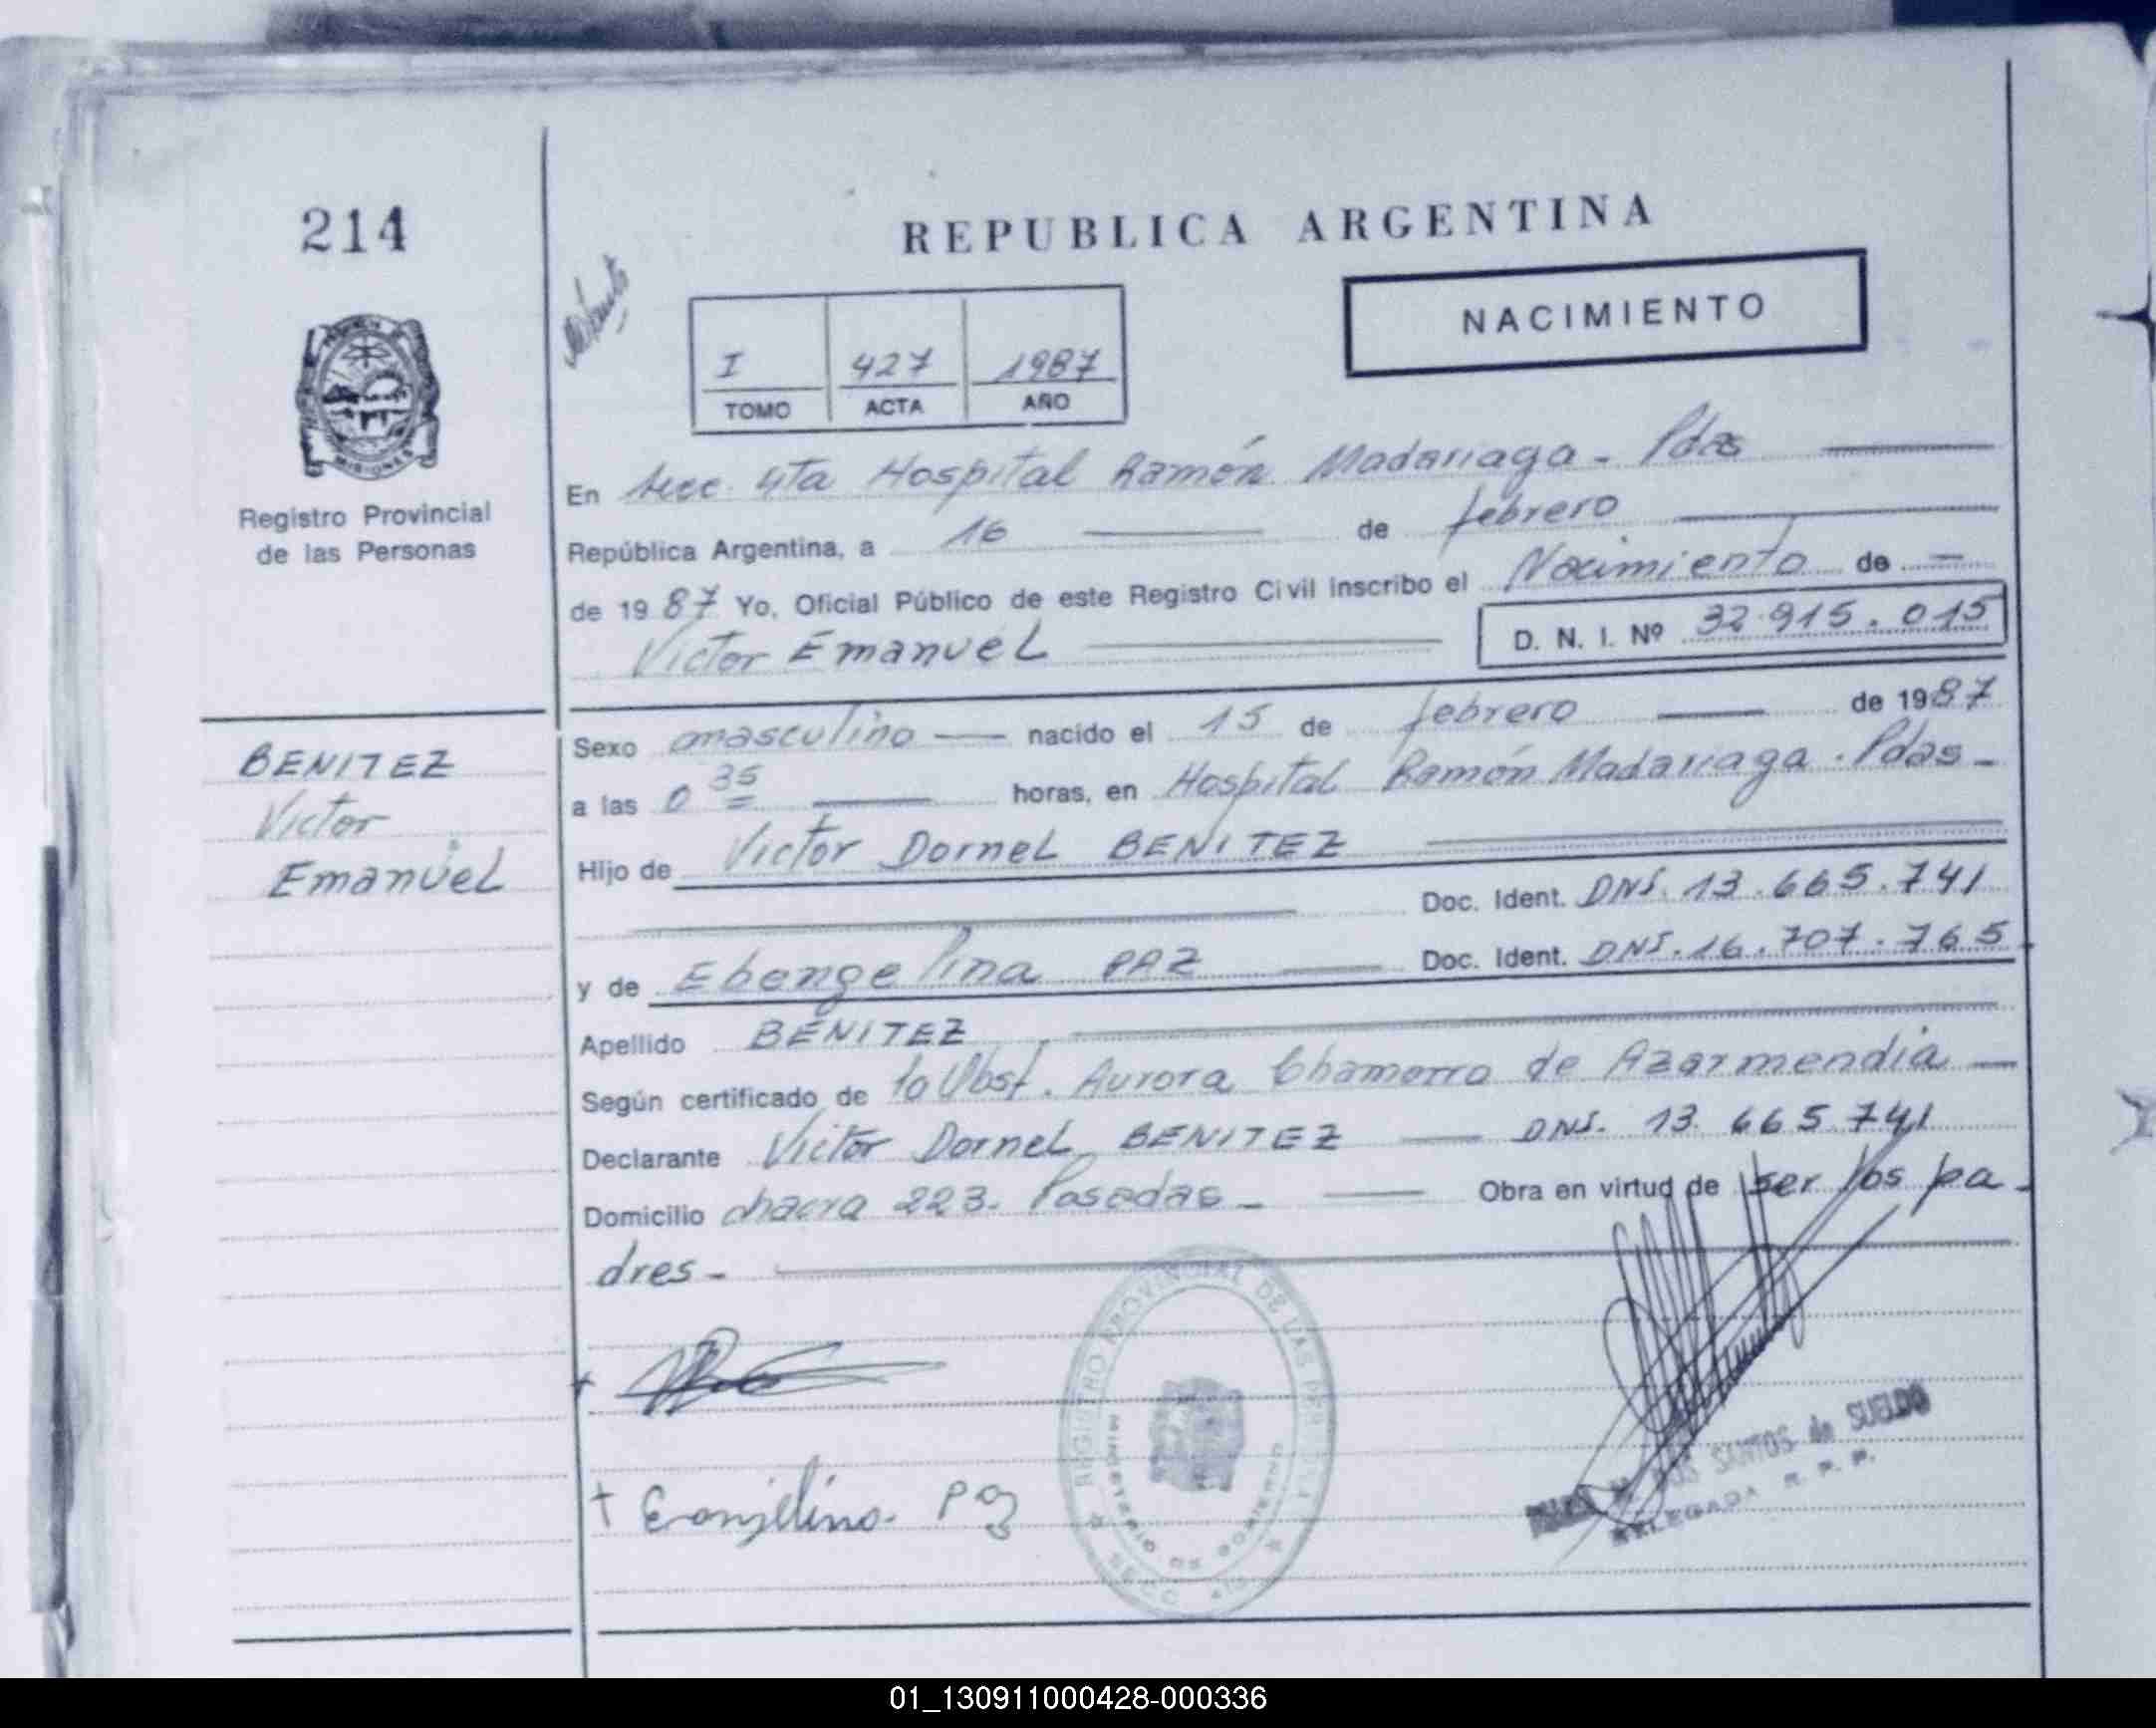 214
REPUBLICA ARGENTINA
NACIMIENTO
I 427 1987
TOMO ACTA AÑO
MISIONES
Registro Provincial
de las Personas
En Secc. 4ta Hospital Ramón Madariaga - Pdas
República Argentina, a 16 de febrero
de 1987 Yo, Oficial Público de este Registro Civil Inscribo el Nacimiento de —
Victor Emanuel D. N. I. Nº 32.915.015
BENITEZ
Victor
Emanuel
Sexo masculino — nacido el 15 de febrero — de 1987
a las 0 35 — horas, en Hospital Ramón Madariaga . Pdas -
Hijo de Victor Dornel BENITEZ
Doc. Ident. DNI. 13.665.741
y de Ebengelina PAZ — Doc. Ident. DNI. 16.707.765
Apellido BENITEZ
Según certificado de la Obst. Aurora Chamorro de Azarmendia —
Declarante Victor Dornel BENITEZ — DNI. 13.665.741
Domicilio chacra 223. Posadas - — Obra en virtud de ser los pa-
dres -
REGISTRO PROVINCIAL DE LAS PERSONAS
MINISTERIO DE GOBIERNO
DOS SANTOS de SUELDO
DELEGADA R. P. P.
01_130911000428-000336